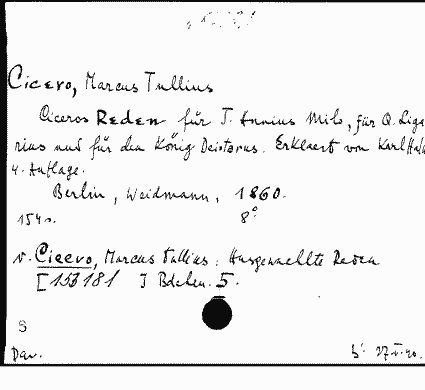 Cicero, Marcus Tullius
Ciceros Reden für T. Annius Milo, für Q. Liga
rius und für den König Deiotarus. Erklaert von Karl Halm
4. Auflage.
Berlin, Weidmann, 1860.
154 s. 8°
v. Cicero, Marcus Tullius: Ausgewaehlte Reden
[153181 J Bdchen. 5.
S
Dav. 27-V-40.